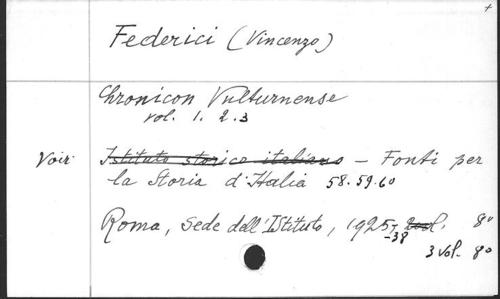 +
Federici (Vincenzo)
Chronicon Vulturnense
vol. 1. 2. 3
Voir Istituto storico italiano - Fonti per
la Storia d'Italia 58. 59. 60
Roma, Sede dell'Istituto, 1925, 2 vol. 8°
-38
3 vol. 8°